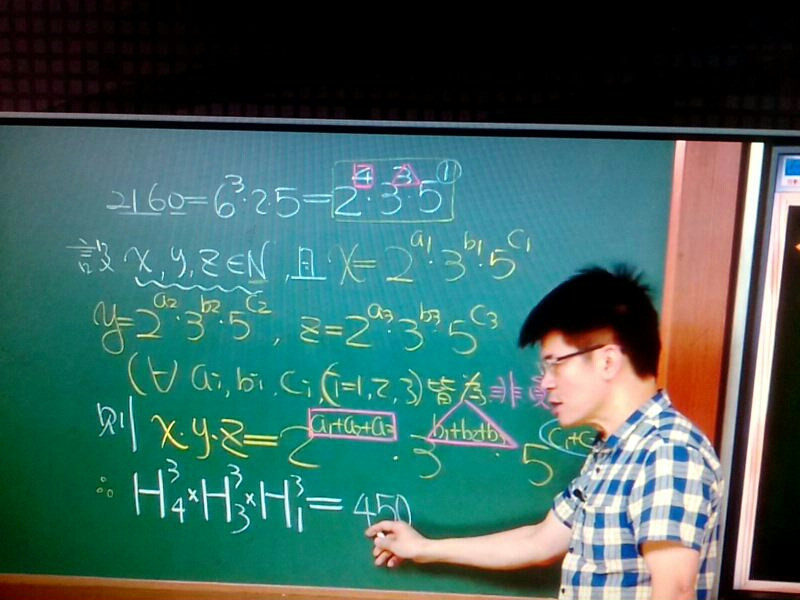 2160=6³·2·5=2⁴·3³·5¹
設 x, y, z∈N, 且 x=2^a₁·3^b₁·5^c₁
y=2^a₂·3^b₂·5^c₂, z=2^a₃·3^b₃·5^c₃
(∀ aᵢ, bᵢ, cᵢ, (i=1,2,3) 皆為非
則 x·y·z=2^a₁+a₂+a₃·3^b₁+b₂+b₃·5^c₁+c
∴ H³₄×H³₃×H³₁=450